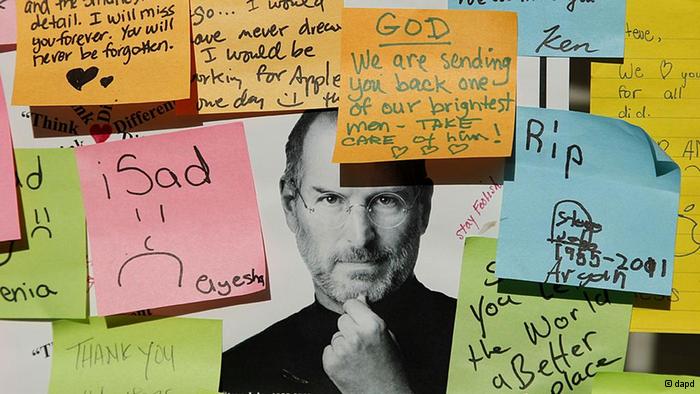 detail. I will miss
you forever. You will
never be forgotten.
so... I would
I would be
for Apple
one day
GOD
We are sending
you back one
of our brightest
men - TAKE
CARE of him!
Ken
We ♡ you
for all
did.
"Think Different
iSad
Ayesha
Stay Foolish
Rip
Steve
Jobs
enia
THANK YOU
You
the World
a Better
place
© dapd